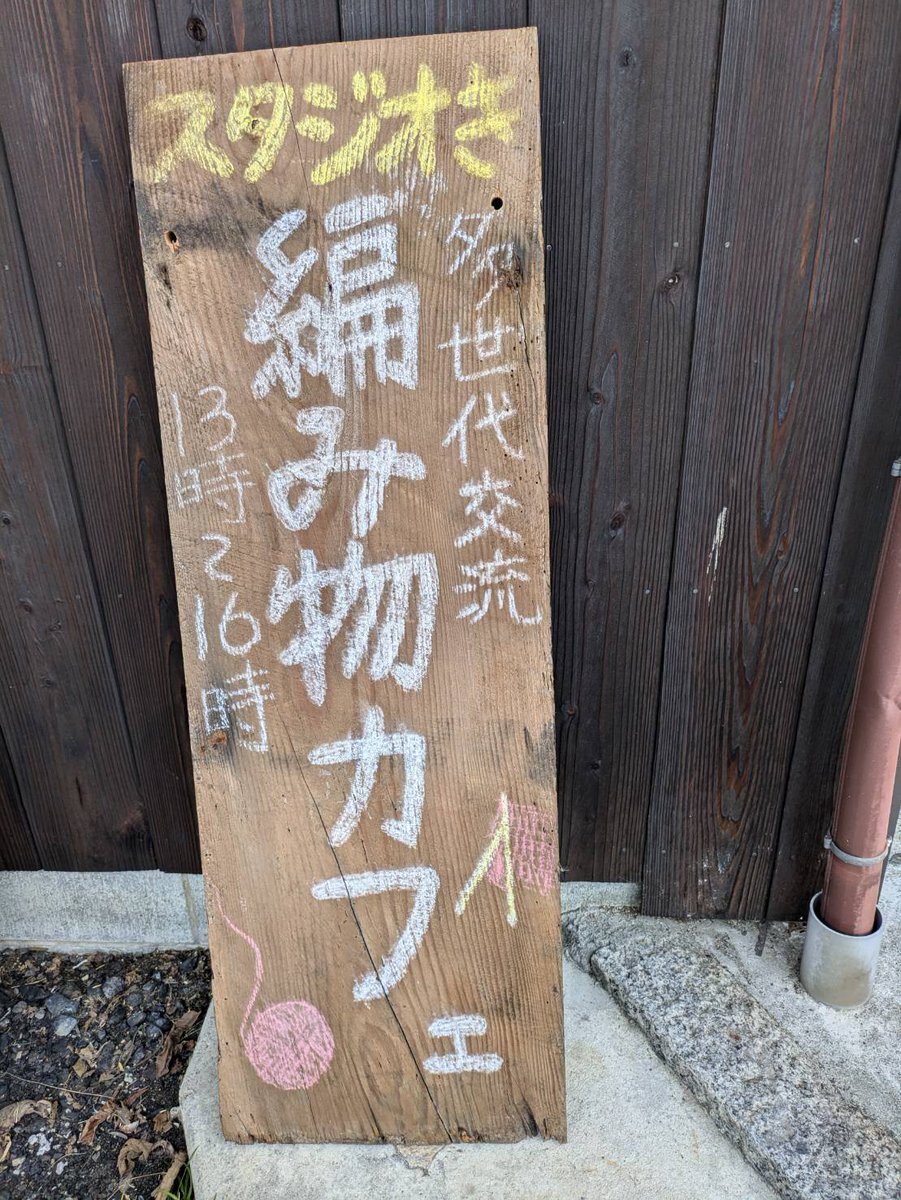 スタジオき
多世代交流
編み物カフェ
13時~16時